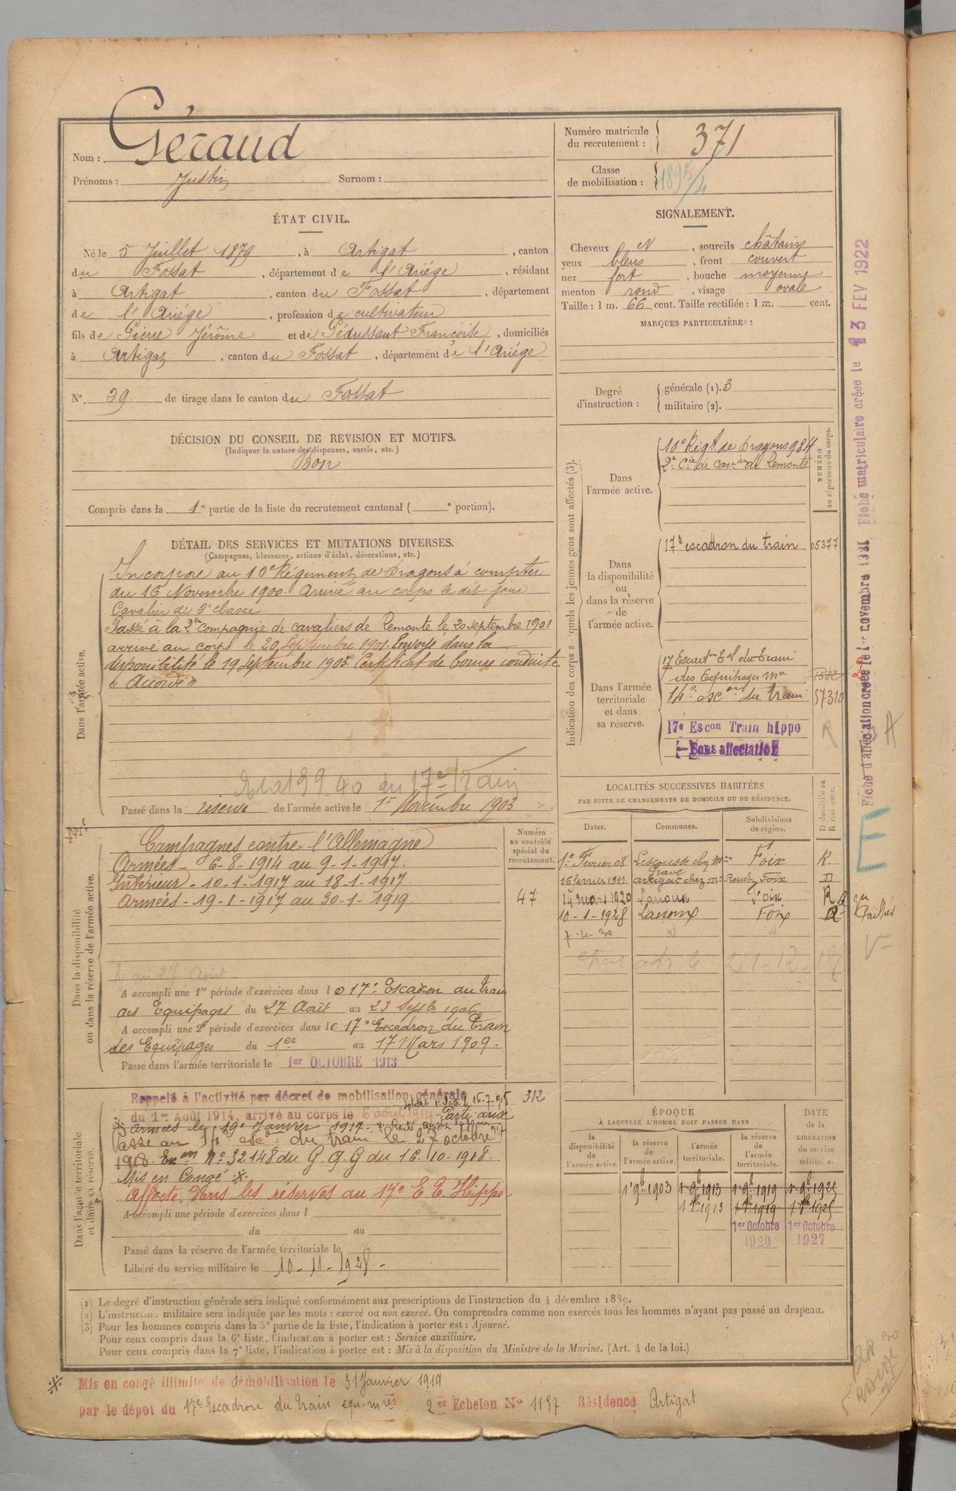 Nom : Géraud
Prénoms : Justin Surnom :
Numéro matricule du recrutement : 371
Classe de mobilisation : 1895/4
ÉTAT CIVIL.
Né le 5 Juillet 1879, à Artigat, canton
du Fossat, département de l'Ariège, résidant
à Artigat, canton du Fossat, département
de l'Ariège, profession de cultivateur
fils de Pierre Jérôme et de Françoise, domiciliés
à Artigat, canton du Fossat, département de l'Ariège
N° 39 de tirage dans le canton du Fossat
SIGNALEMENT.
Cheveux N, sourcils châtains
yeux bleus, front couvert
nez fort, bouche moyenne
menton rond, visage ovale
Taille : 1 m. 66 cent. Taille rectifiée : 1 m. cent.
MARQUES PARTICULIÈRES :
Degré d'instruction : générale (1). 3
militaire (2).
DÉCISION DU CONSEIL DE REVISION ET MOTIFS.
(Indiquer la nature des dispenses, sursis, etc.)
Bon
Compris dans la 1e partie de la liste du recrutement cantonal ( e portion).
DÉTAIL DES SERVICES ET MUTATIONS DIVERSES.
(Campagnes, blessures, actions d'éclat, décorations, etc.)
Dans l'armée active.
Incorporé au 10e Régiment de Dragons à compter
du 16 Novembre 1900 Arrivé au corps le dit jour
Cavalier de 2e classe
Passé à la 2e Compagnie de cavaliers de Remonte le 20 septembre 1901
arrivé au corps le 20 Septembre 1901. Envoyé dans la
disponibilité le 19 Septembre 1903 Certificat de bonne conduite
" Accordé "
Passé dans la réserve de l'armée active le 1er Novembre 1903
Indication des corps auxquels les jeunes gens sont affectés (3).
NUMÉRO au répertoire du corps.
Dans l'armée active.
10e Régt de Dragons 984
2e Cie de Cavers de Remonte
Dans la disponibilité ou dans la réserve de l'armée active.
17e escadron du train 05377
Dans l'armée territoriale et dans sa réserve.
17 Escon Tal du Train
des Equipages mres
14e escon du train 57310
17e Escon Train hippo
Sans affectation
Dans la disponibilité ou dans la réserve de l'armée active.
Campagnes contre l'Allemagne
Armées - 6-8-1914 au 9-1-1917
Intérieur - 10-1-1917 au 18-1-1917.
Armées - 19-1-1917 au 30-1-1919.
Numéro au contrôle spécial du recrutement.
47
A accompli une 1re période d'exercices dans le 17e Escadron du train
des Equipages du 27 Août au 23 Septbre 1906
A accompli une 2e période d'exercices dans le 17e Escadron du Train
des Equipages du 1er au 17 Mars 1909.
Passé dans l'armée territoriale le 1er OCTOBRE 1913
LOCALITÉS SUCCESSIVES HABITÉES
PAR SUITE DE CHANGEMENTS DE DOMICILE OU DE RÉSIDENCE.
Dates. Communes. Subdivisions de région. D domicile ou R résidence.
1er Février 08 Foix R.
Artigat Foix D
14 mars 1920 Lanoux Foix R
10-1-1928 Lanoux Foix
Dans l'armée territoriale et dans sa réserve.
Rappelé à l'activité par décret de mobilisation générale 312
du 1er Août 1914, arrivé au corps le 6 août 1914 - Parti aux
armées le 19 Janvier 1917.
Passé au 14e esc. du train le 27 octobre
1918 N° 32148 du G.Q.G du 16.10.1918.
Mis en Congé ※.
Affecté dans les réserves au 17e E.T. Hippo.
A accompli une période d'exercices dans l
du au
Passé dans la réserve de l'armée territoriale le
Libéré du service militaire le 10-11-1928-
ÉPOQUE
À LAQUELLE L'HOMME DOIT PASSER DANS
la disponibilité de l'armée active. la réserve de l'armée active. l'armée territoriale. la réserve de l'armée territoriale.
DATE DE LA LIBÉRATION du service militaire.
1 9bre 1903 1 9bre 1913 1 9bre 1919 1 9bre 1925
1 8bre 1913 1 8bre 1919 1 8bre 1925
1er Octobre 1920 1er Octobre 1927
(1) Le degré d'instruction générale sera indiqué conformément aux prescriptions de l'instruction du 4 décembre 1889.
(2) L'instruction militaire sera indiquée par les mots : exercé ou non exercé. On comprendra comme non exercés tous les hommes n'ayant pas passé au drapeau.
(3) Pour les hommes compris dans la 5e partie de la liste, l'indication à porter est : Ajourné.
Pour ceux compris dans la 6e liste, l'indication à porter est : Service auxiliaire.
Pour ceux compris dans la 7e liste, l'indication à porter est : Mis à la disposition du Ministre de la Marine. (Art. 4 de la loi.)
※ Mis en congé illimité de démobilisation le 31 Janvier 1919
par le dépôt du 17e Escadron du train équ. mres 2e Echelon N° 1187 Résidence Artigat
Fiche matriculaire créée le 13 FEV 1922
Fiche d'affectation créée le 1er novembre
E